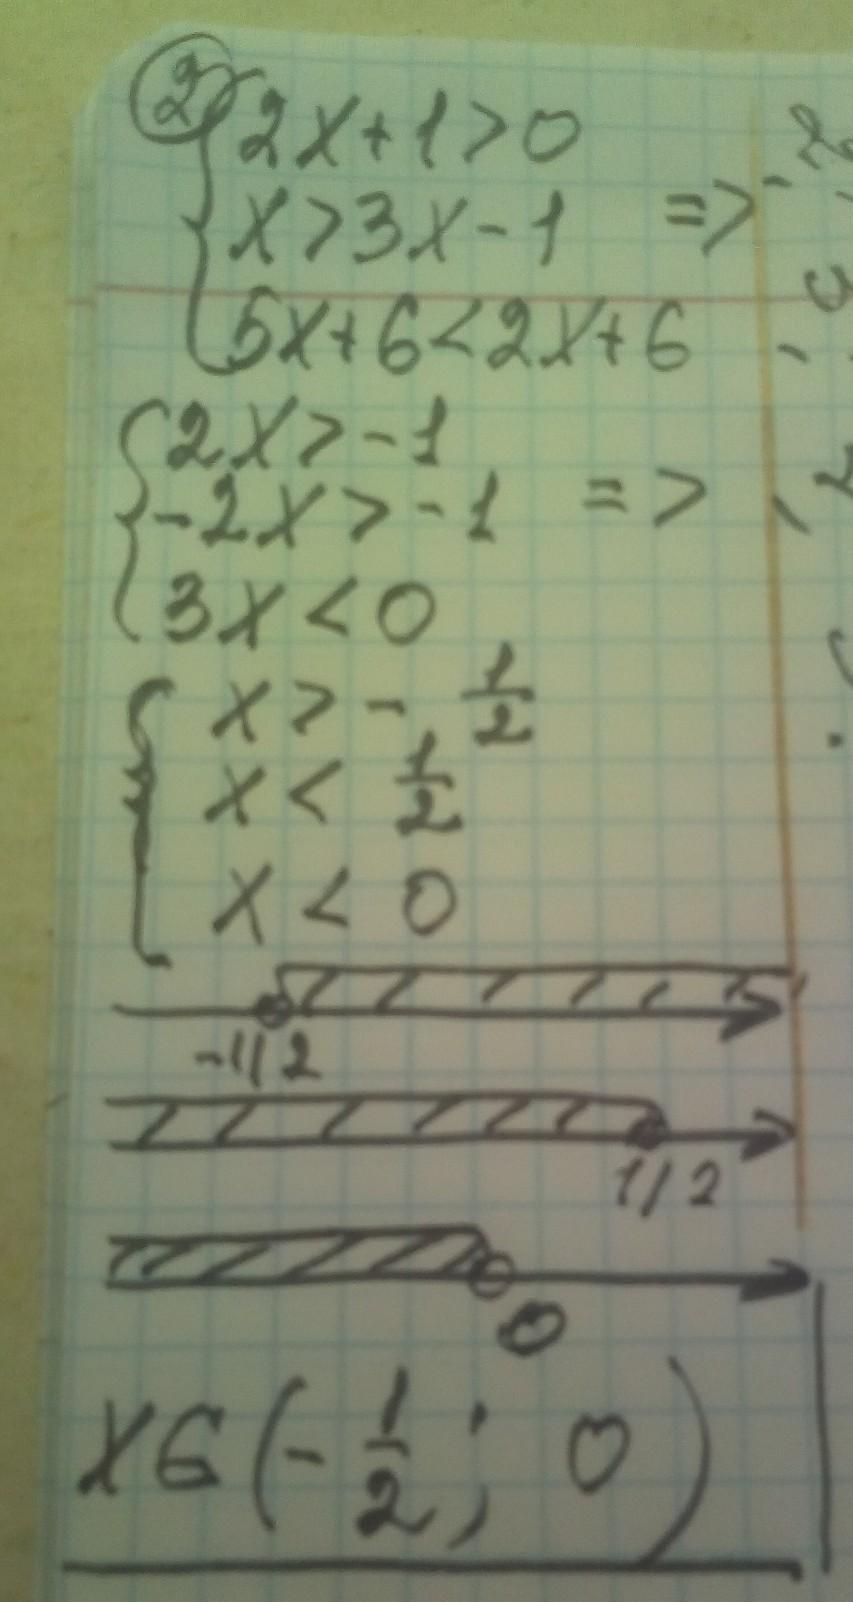 2
2x+1>0
x>3x-1 =>
5x+6<2x+6
2x>-1
-2x>-1 =>
3x<0
x>-1/2
x<1/2
x<0
-1/2
1/2
0
x∈(-1/2; 0)